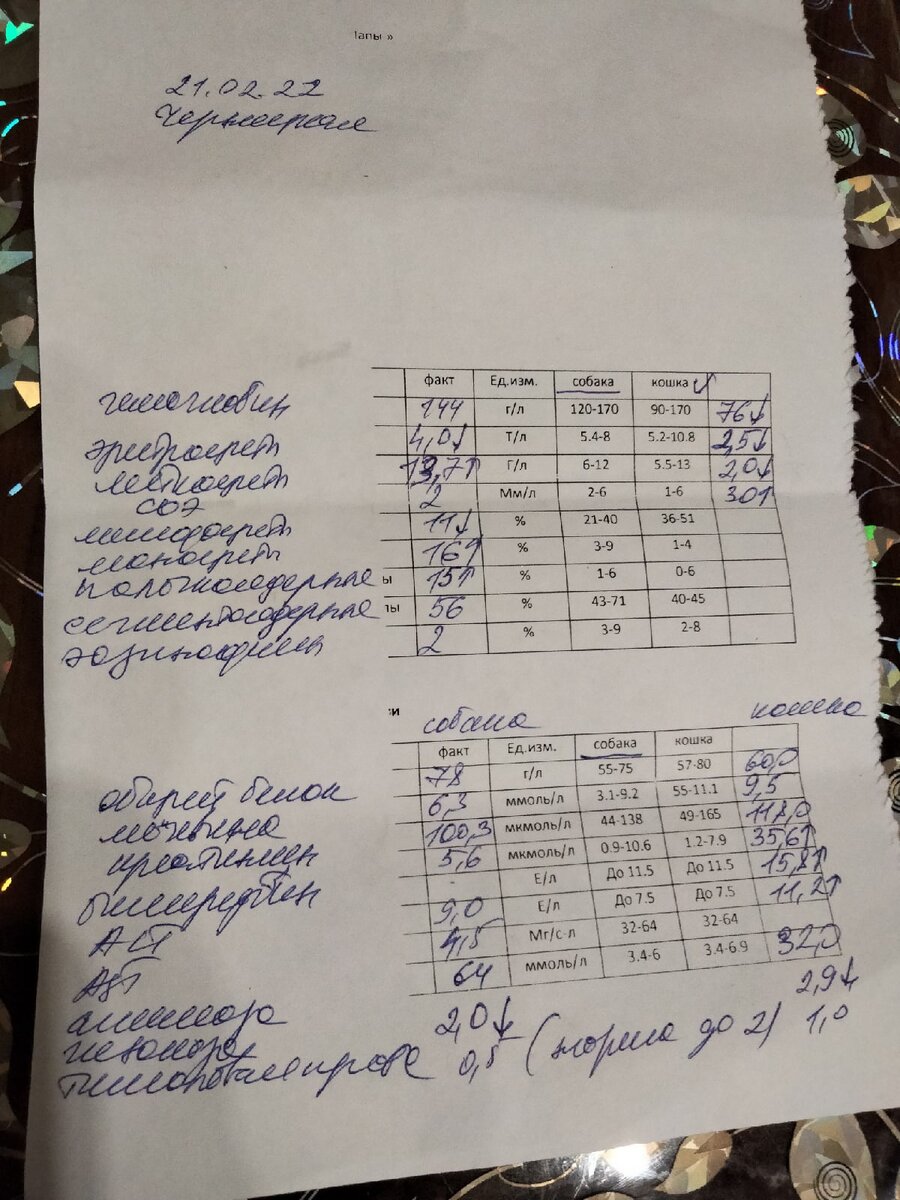 Лапы »
21.02.22
факт Ед.изм. собака кошка
гемоглобин 144 г/л 120-170 90-170 76↓
эритроциты 4,0↓ Т/л 5.4-8 5.2-10.8 2,5↓
лейкоциты 13,7↑ Г/л 6-12 5.5-13 2,0↓
СОЭ 2 Мм/л 2-6 1-6 30↑
лимфоциты 11↓ % 21-40 36-51
моноциты 16↑ % 3-9 1-4
палочкоядерные ы 15↑ % 1-6 0-6
сегментоядерные лы 56 % 43-71 40-45
эозинофилы 2 % 3-9 2-8
зи собака кошка
факт Ед.изм. собака кошка
общий белок 78 г/л 55-75 57-80 60,0
мочевина 6,3 ммоль/л 3.1-9.2 55-11.1 9,5
креатинин 100,3 мкмоль/л 44-138 49-165 118,0
билирубин 5,6 мкмоль/л 0.9-10.6 1.2-7.9 35,6↑
АСТ - Е/л До 11.5 До 11.5 15,8↑
АЛТ 9,0 Е/л До 7.5 До 7.5 11,2↑
4,5 Мг/с·л 32-64 32-64
амилаза 64 ммоль/л 3.4-6 3.4-6.9 32,0
глюкоза 2,0↓ 2,9↓
тимоловая проба 0,5 (норма до 2) 1,0